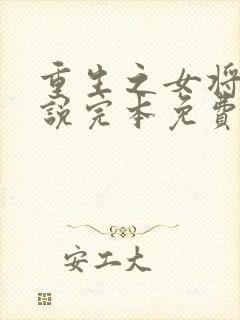 重生之女将
说完本免费
安工大